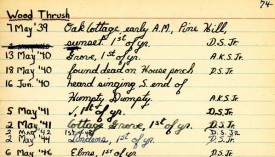 74-
Wood Thrush
7 May '39 Oak Cottage, early A.M., Pine Hill,
sunset 1st of yr. D.S. Jr.
13 May '40 Grove, 1st of yr. A.K.S. Jr.
18 May '40 found dead on House porch D.S. Jr.
16 Jun. '40 heard singing S. end of
Humpty Dumpty. A.K.S. Jr.
5 May '41 √, 1st of yr. D.S. Jr.
2 May '41 Cottage Grove, 1st of yr. D.S. Jr.
2 May '42 1st of yr. D.S. Jr.
2 May '44 Lindens, 1st of yr. D.S. Jr.
6 May '46 Elms, 1st of yr. D.S. Jr.